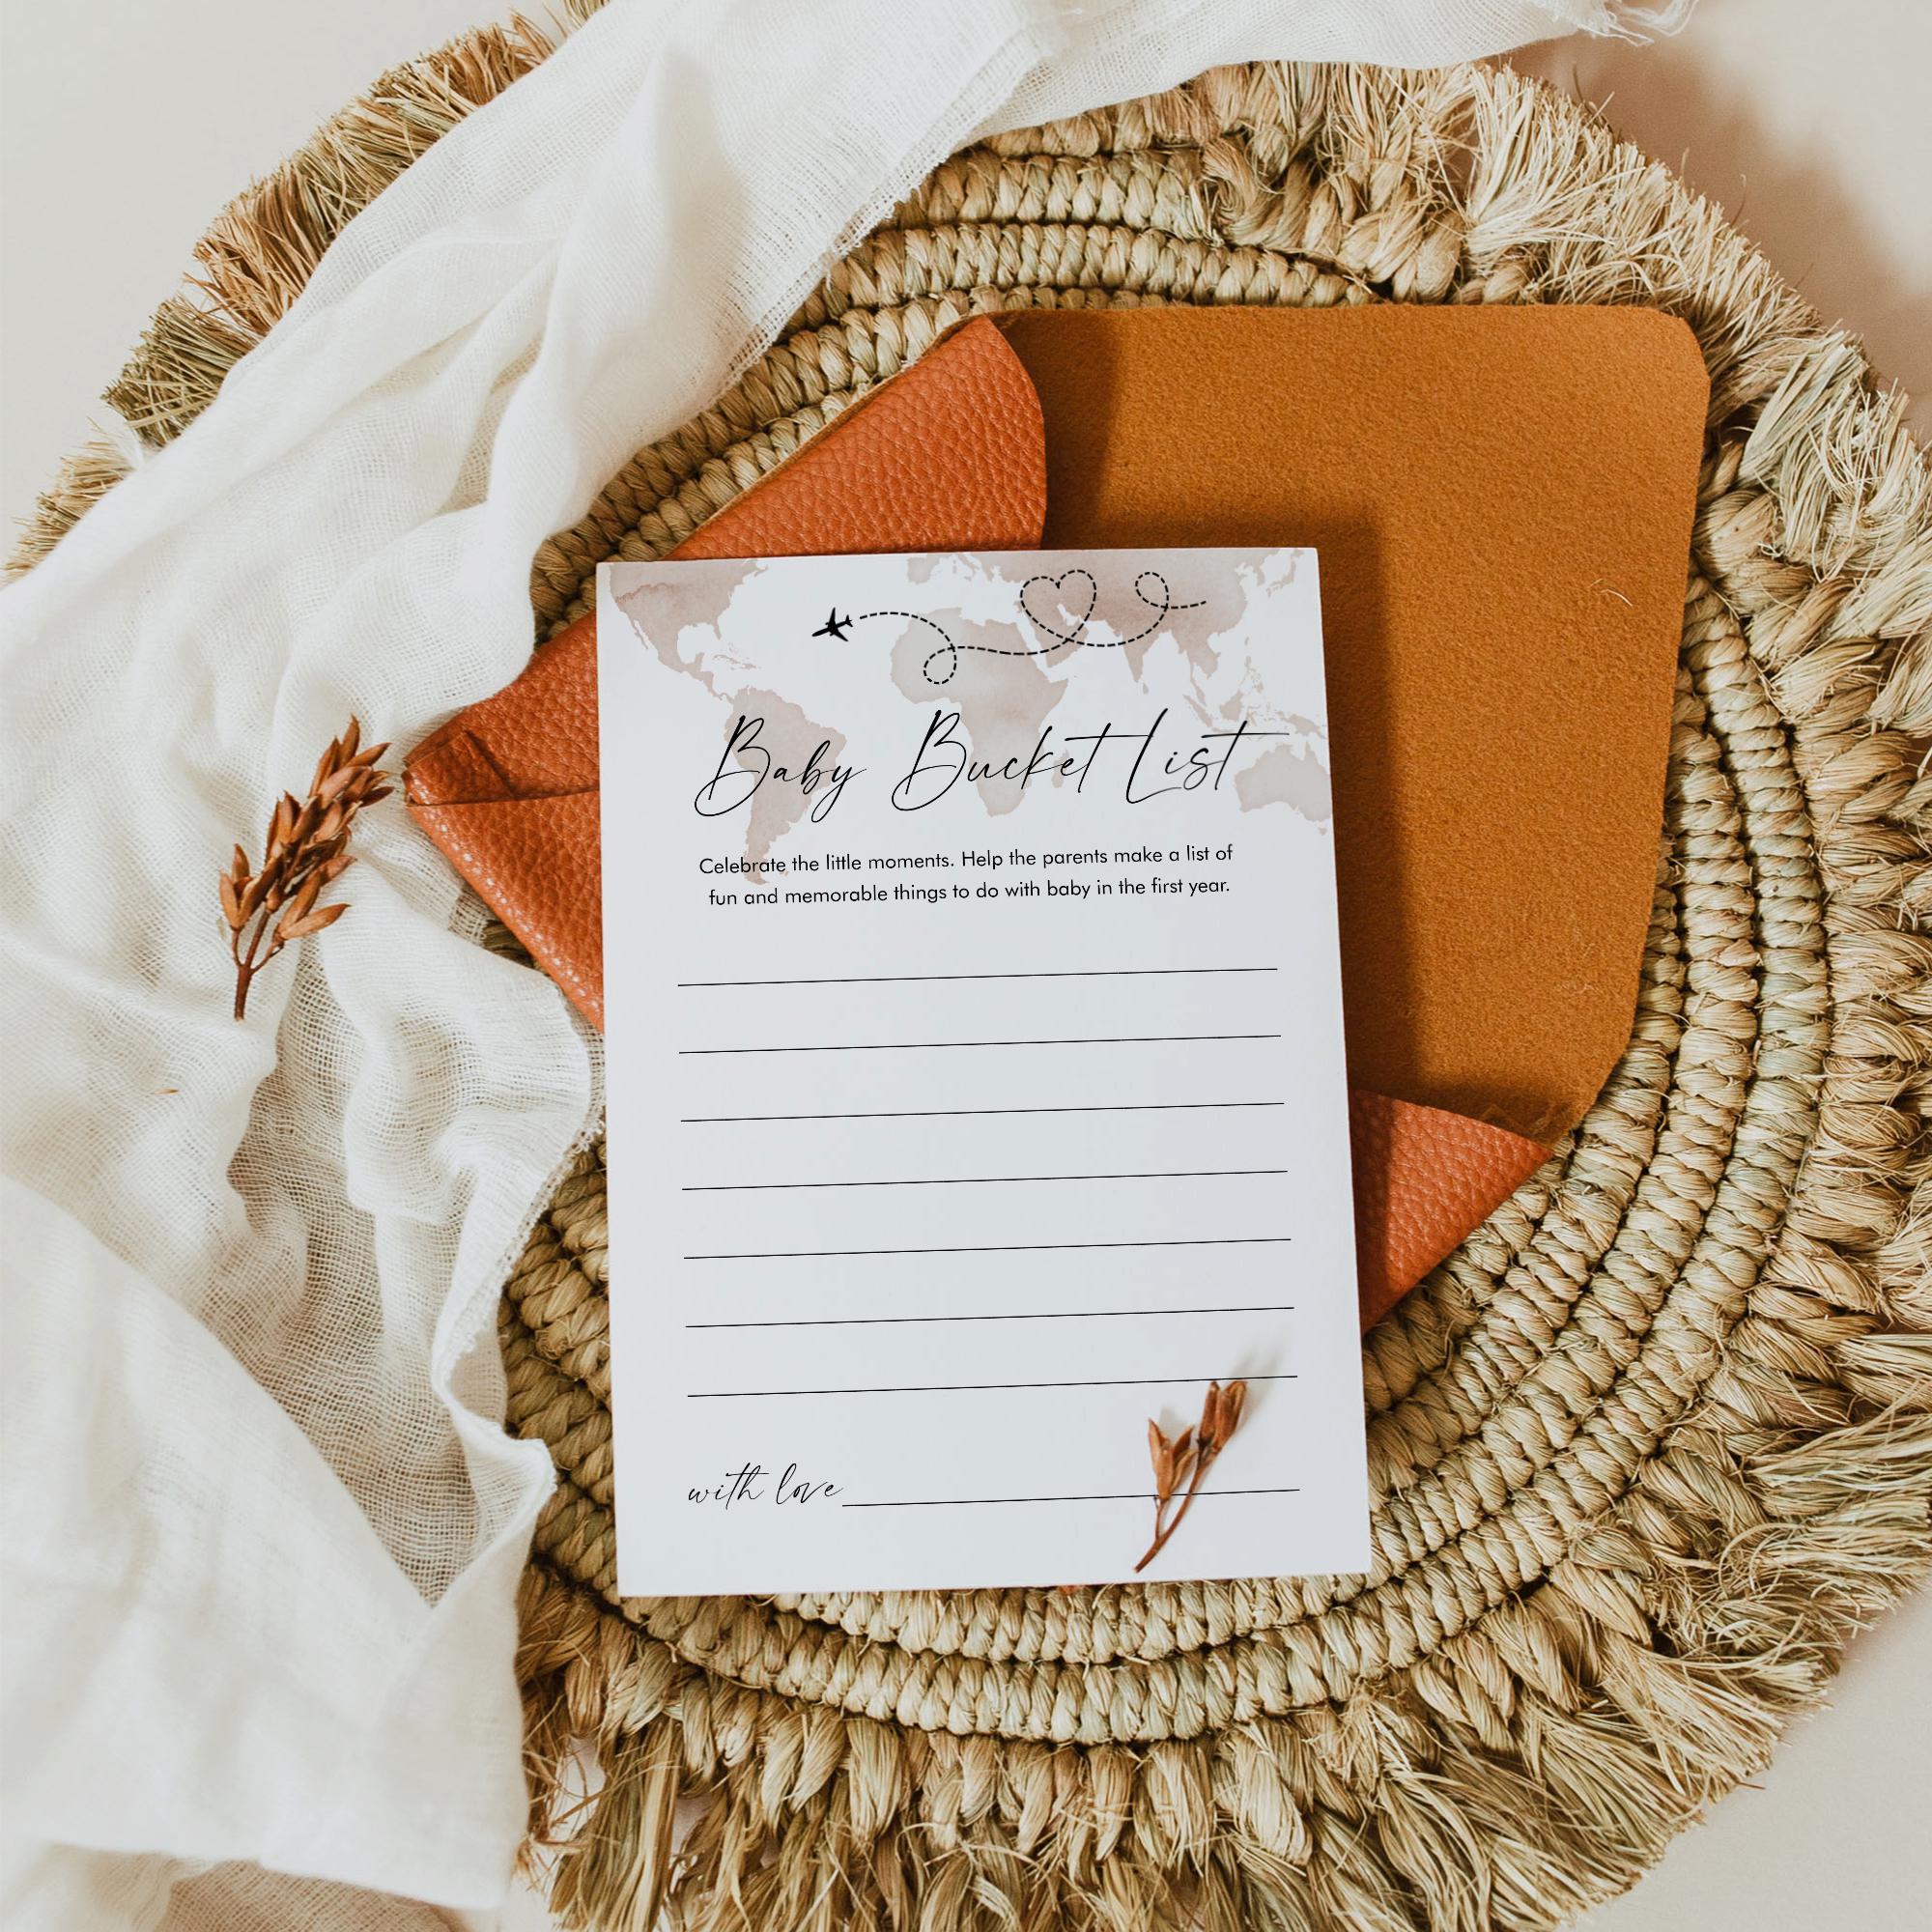 Baby Bucket List
Celebrate the little moments. Help the parents make a list of
fun and memorable things to do with baby in the first year.
with love